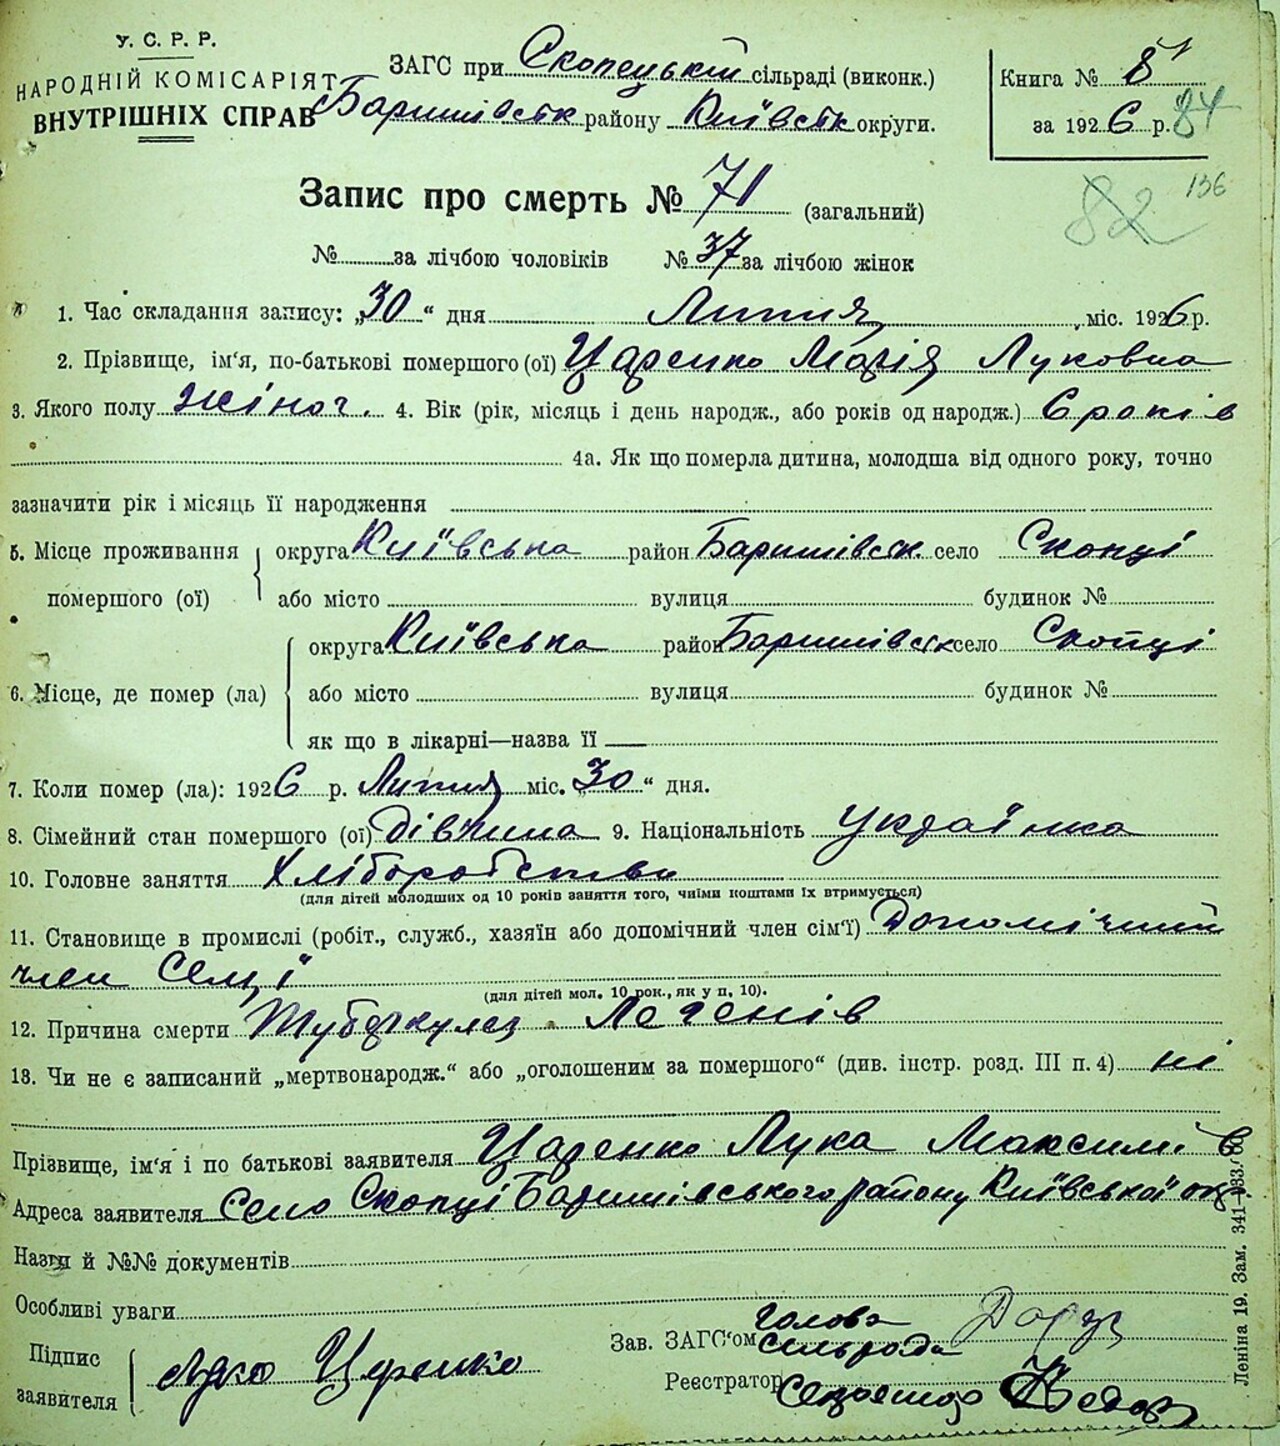 У. С. Р. Р.
НАРОДНІЙ КОМІСАРІЯТ
ВНУТРІШНІХ СПРАВ
ЗАГС при Скопецькій сільраді (виконк.)
Баришівськ району Київськ округи.
Книга № 8
за 1926 р. 84
82 136
Запис про смерть № 71 (загальний)
№ за лічбою чоловіків № 37 за лічбою жінок
1. Час складання запису: „30“ дня Липня міс. 1926 р.
2. Прізвище, ім‘я, по-батькові помершого (ої) Царенко Марія Луковна
3. Якого полу жіноч. 4. Вік (рік, місяць і день народж., або років од народж.) 6 років
4а. Як що померла дитина, молодша від одного року, точно
зазначити рік і місяць її народження
5. Місце проживання помершого (ої) округа Київська район Баришівськ село Скопці
або місто вулиця будинок №
6. Місце, де помер (ла) округа Київська район Баришівськ село Скопці
або місто вулиця будинок №
як що в лікарні—назва її
7. Коли помер (ла): 1926 р. Липня міс. „30“ дня.
8. Сімейний стан помершого (ої) Дівчина 9. Національність Українка
10. Головне заняття Хліборобство
(для дітей молодших од 10 років заняття того, чиїми коштами їх втримується)
11. Становище в промислі (робіт., служб., хазяїн або допомічний член сім‘ї) Допомічний
член Семї
(для дітей мол. 10 рок., як у п. 10).
12. Причина смерти Туберкулез Легенів
13. Чи не є записаний „мертвонародж.“ або „оголошеним за помершого“ (див. інстр. розд. III п. 4) ні
Прізвище, ім‘я і по батькові заявителя Царенко Лука Максимів
Адреса заявителя Село Скопці Баришівського району Київської окр.
Назви й №№ документів
Особливі уваги
Підпис заявителя Луко Церенко
Зав. ЗАГС‘ом Голова Сельрода
Реєстратор
Леніна 19. Зам. 341—33.